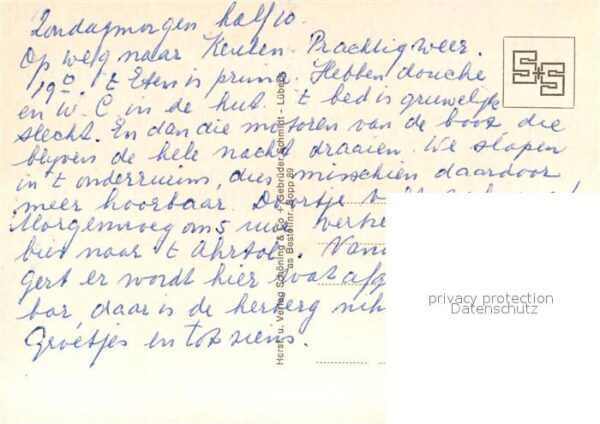 Zondagmorgen half 10.
Op weg naar Keulen. Prachtig weer.
19°. 't Eten is prima. Hebben douche
en W.C in de hut. 't bed is gruwelijk
slecht. En dan die motoren van de boot die
blijven de hele nacht draaien. We slapen
in 't onderruim, dus misschien daardoor
meer hoorbaar.
Morgenvroeg om 5 uur
bus naar 't Ahrtal.
gert er wordt hier wat
bar, daar is de herberg
Groetjes en tot ziens.
S+S
Herst. u. Verlag Schöning & Co + Gebrüder Schmidt - Lübeck
as Bestellnr. Bopp 89
privacy protection
Datenschutz